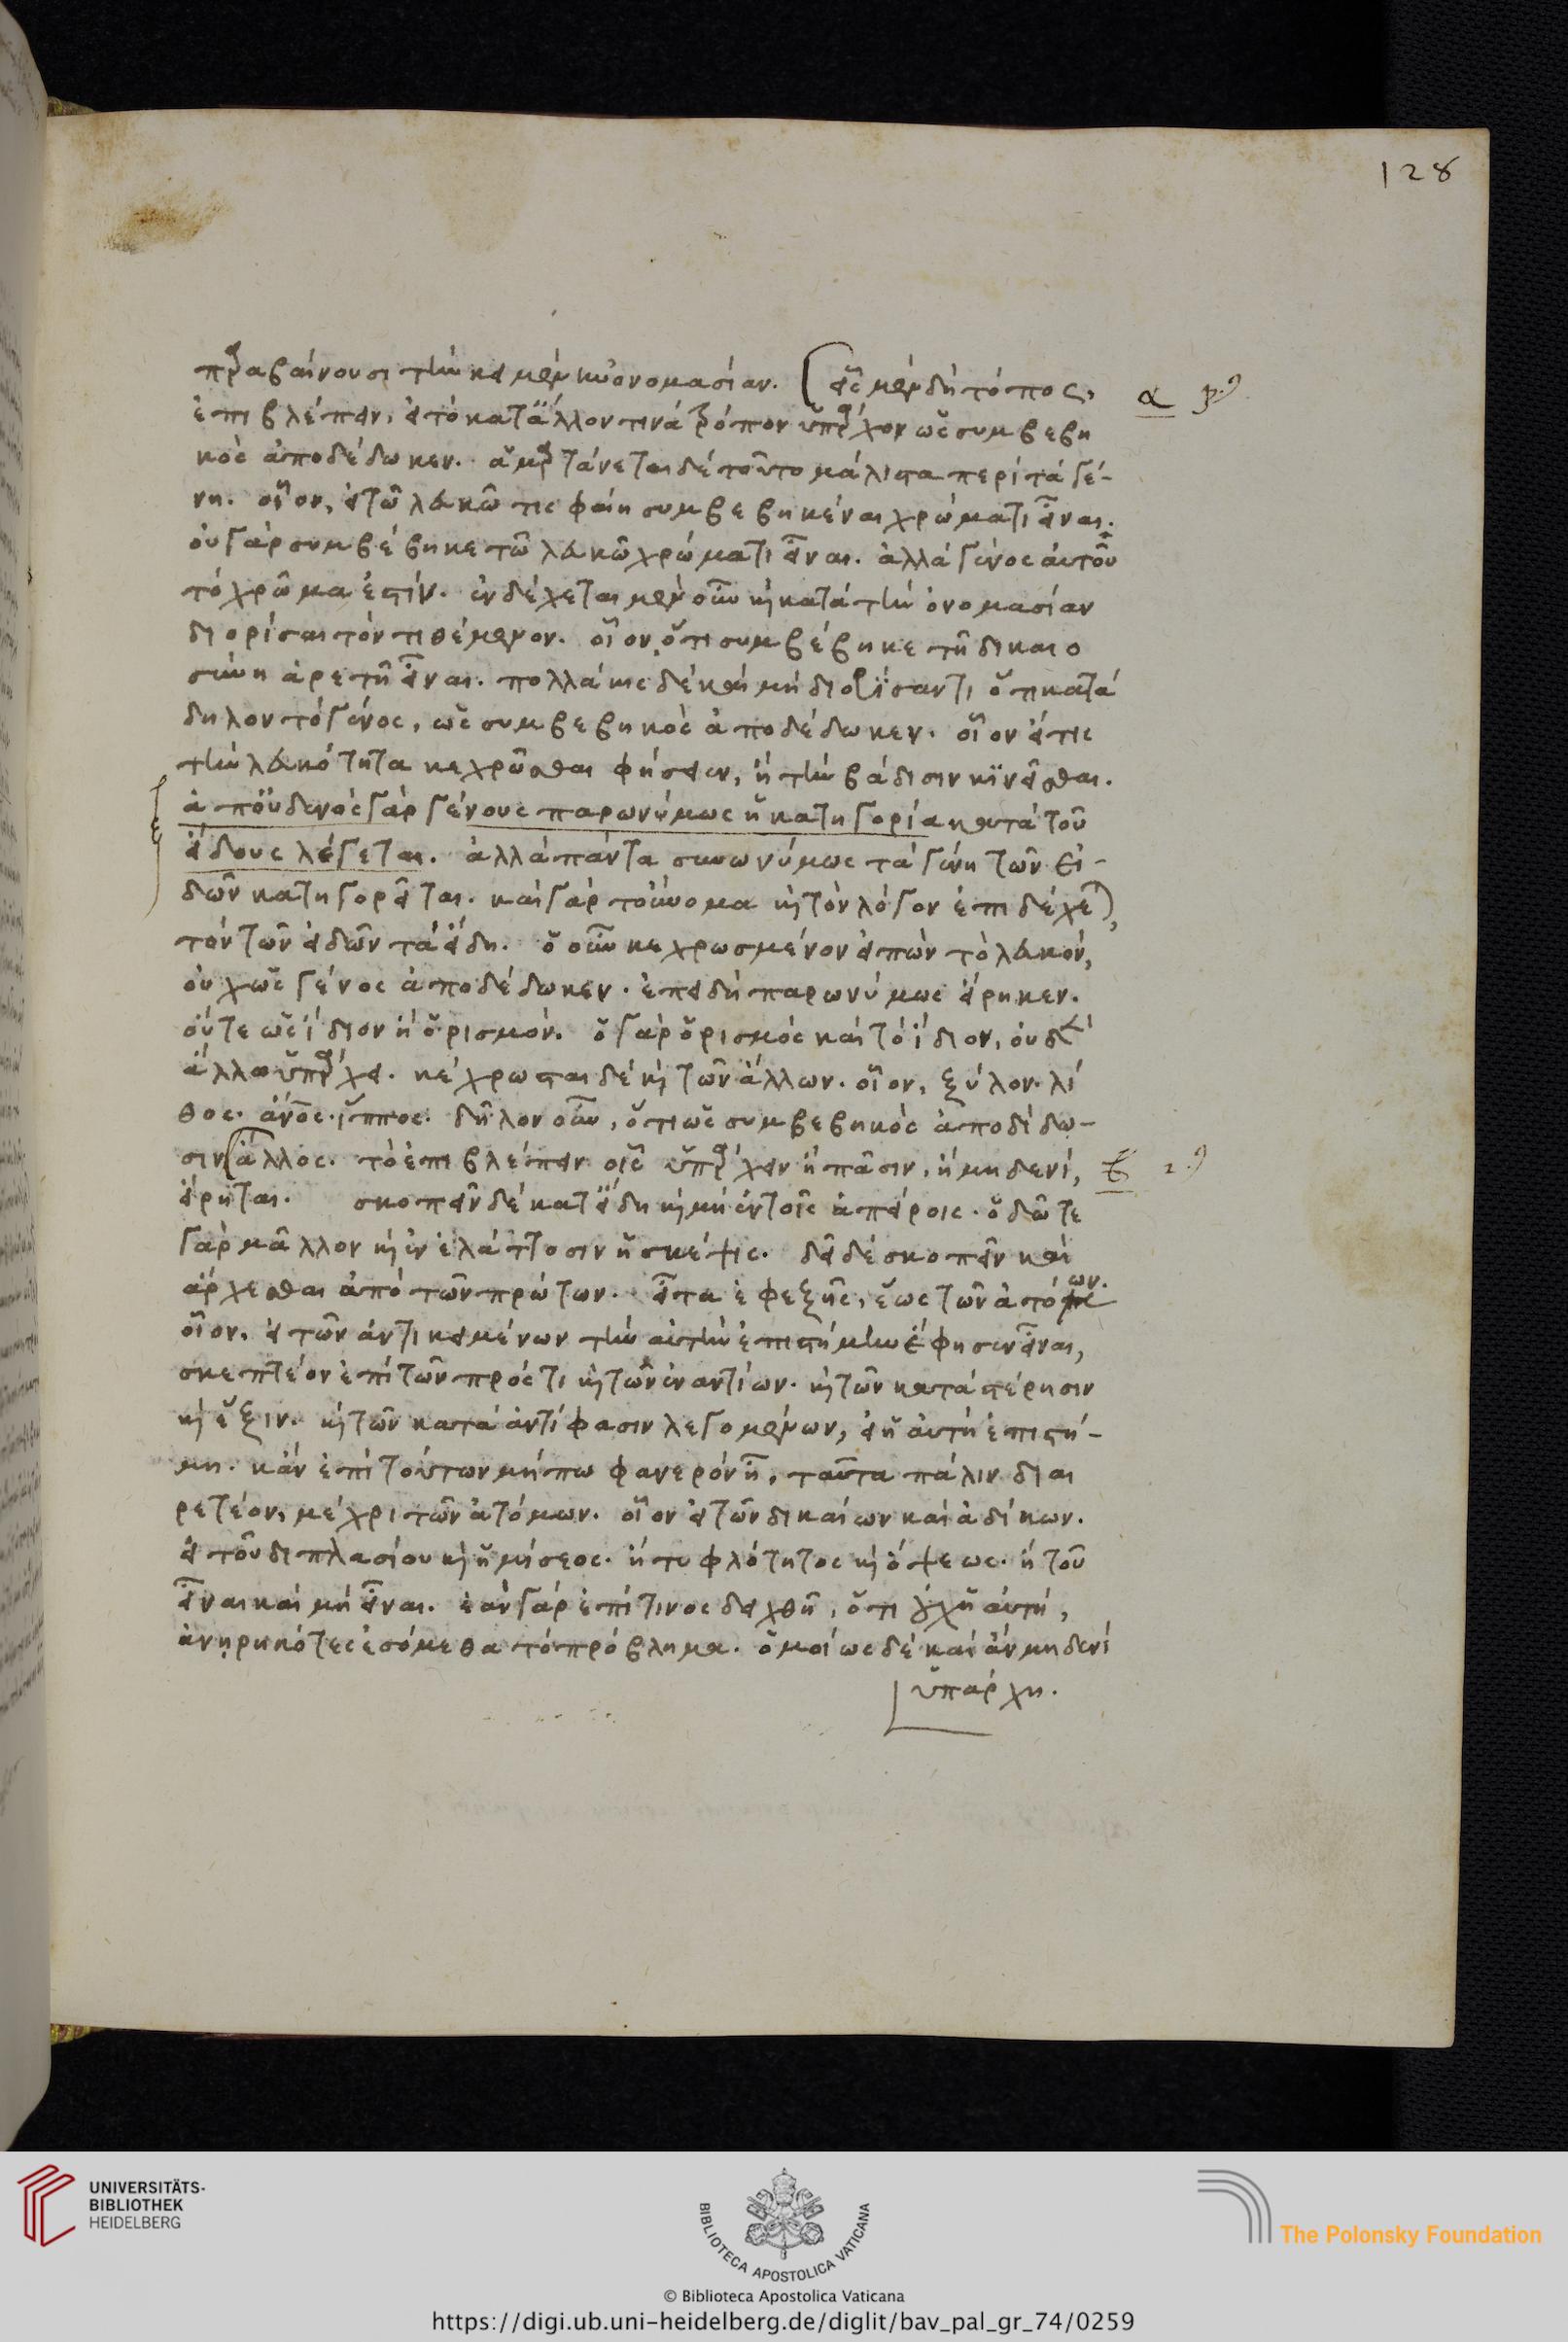 128
παραβαίνουσι τὴν κειμένην ὀνομασίαν. εἷς μὲν δὴ τόπος,
α
ἐπιβλέπειν, εἰ τὸ κατ' ἄλλον τινὰ τρόπον ὑπάρχον ὡς συμβεβη
κὸς ἀποδέδωκεν. ἁμαρτάνεται δὲ τοῦτο μάλιστα περὶ τὰ γέ-
νη. οἷον, εἰ τῶ λευκῶ τις φαίη συμβεβηκέναι χρώματι εἶναι.
οὐ γὰρ συμβέβηκε τῶ λευκῶ χρώματι εἶναι. ἀλλὰ γένος αὐτοῦ
τὸ χρῶμα ἐστίν. ἐνδέχεται μὲν οὖν καὶ κατὰ τὴν ὀνομασίαν
διορίσαι τὸν τιθέμενον. οἷον, ὅτι συμβέβηκε τῆ δικαιο
σύνη ἀρετῆ εἶναι. πολλάκις δὲ καὶ μὴ διορίσαντι ὅτι κατά
δηλον τὸ γένος, ὡς συμβεβηκὸς ἀποδέδωκεν. οἷον εἴ τις
τὴν λευκότητα κεχρῶσθαι φήσειεν, ἢ τὴν βάδισιν κινεῖσθαι.
ἀπ' οὐδενὸς γὰρ γένους παρωνύμως ἡ κατηγορία κατὰ τοῦ
εἴδους λέγεται. ἀλλὰ πάντα συνωνύμως τὰ γένη τῶν εἰ-
δῶν κατηγορεῖται. καὶ γὰρ τοὔνομα καὶ τὸν λόγον ἐπιδέχεται
τὸν τῶν εἰδῶν τὰ εἴδη. ὁ οὖν κεχρωσμένον εἰπὼν τὸ λευκόν,
οὐχ ὡς γένος ἀποδέδωκεν. ἐπειδὴ παρωνύμως εἴρηκεν.
οὔτε ὡς ἴδιον ἢ ὁρισμόν. ὁ γὰρ ὁρισμὸς καὶ τὸ ἴδιον, οὐδενὶ
ἄλλω ὑπάρχει. κέχρωσται δὲ καὶ τῶν ἄλλων. οἷον, ξύλον. λί
θος. ἄνος. ἵππος. δῆλον οὖν, ὅτι ὡς συμβεβηκὸς ἀποδίδω-
σιν ἄλλος. τὸ ἐπιβλέπειν οἷς ὑπάρχειν ἢ πᾶσιν, ἢ μηδενί,
εἴρηται. σκοπεῖν δὲ κατ' εἴδη καὶ μὴ ἐν τοῖς ἀπείροις. ὁδῶ τε
γὰρ μᾶλλον καὶ ἐν ἐλάττοσιν ἡ σκέψις. δεῖ δὲ σκοπεῖν καὶ
ἄρχεσθαι ἀπὸ τῶν πρώτων. εἶτα ἐφεξῆς, ἕως τῶν ἀτόμων.
οἷον, εἰ τῶν ἀντικειμένων τὴν αὐτὴν ἐπιστήμην ἔφησεν εἶναι,
σκεπτέον ἐπὶ τῶν πρός τι καὶ τῶν ἐναντίων. καὶ τῶν κατὰ στέρησιν
καὶ ἕξιν. καὶ τῶν κατὰ ἀντίφασιν λεγομένων, εἰ ἡ αὐτὴ ἐπιστή-
μη. κἂν ἐπὶ τούτων μήπω φανερὸν ἦ, ταῦτα πάλιν διαι
ρετέον, μέχρι τῶν ἀτόμων. οἷον εἰ τῶν δικαίων καὶ ἀδίκων.
εἰ τοῦ διπλασίου καὶ ἡμίσεος. ἢ τυφλότητος καὶ ὄψεως. ἢ τοῦ
εἶναι καὶ μὴ εἶναι. ἐὰν γὰρ ἐπί τινος δειχθῆ, ὅτι οὐχ ἡ αὐτή,
ἀνῃρηκότες ἐσόμεθα τὸ πρόβλημα. ὁμοίως δὲ καὶ ἂν μηδενὶ
ὑπάρχη.
UNIVERSITÄTS-
BIBLIOTHEK
HEIDELBERG
BIBLIOTECA APOSTOLICA VATICANA
The Polonsky Foundation
© Biblioteca Apostolica Vaticana
https://digi.ub.uni-heidelberg.de/diglit/bav_pal_gr_74/0259